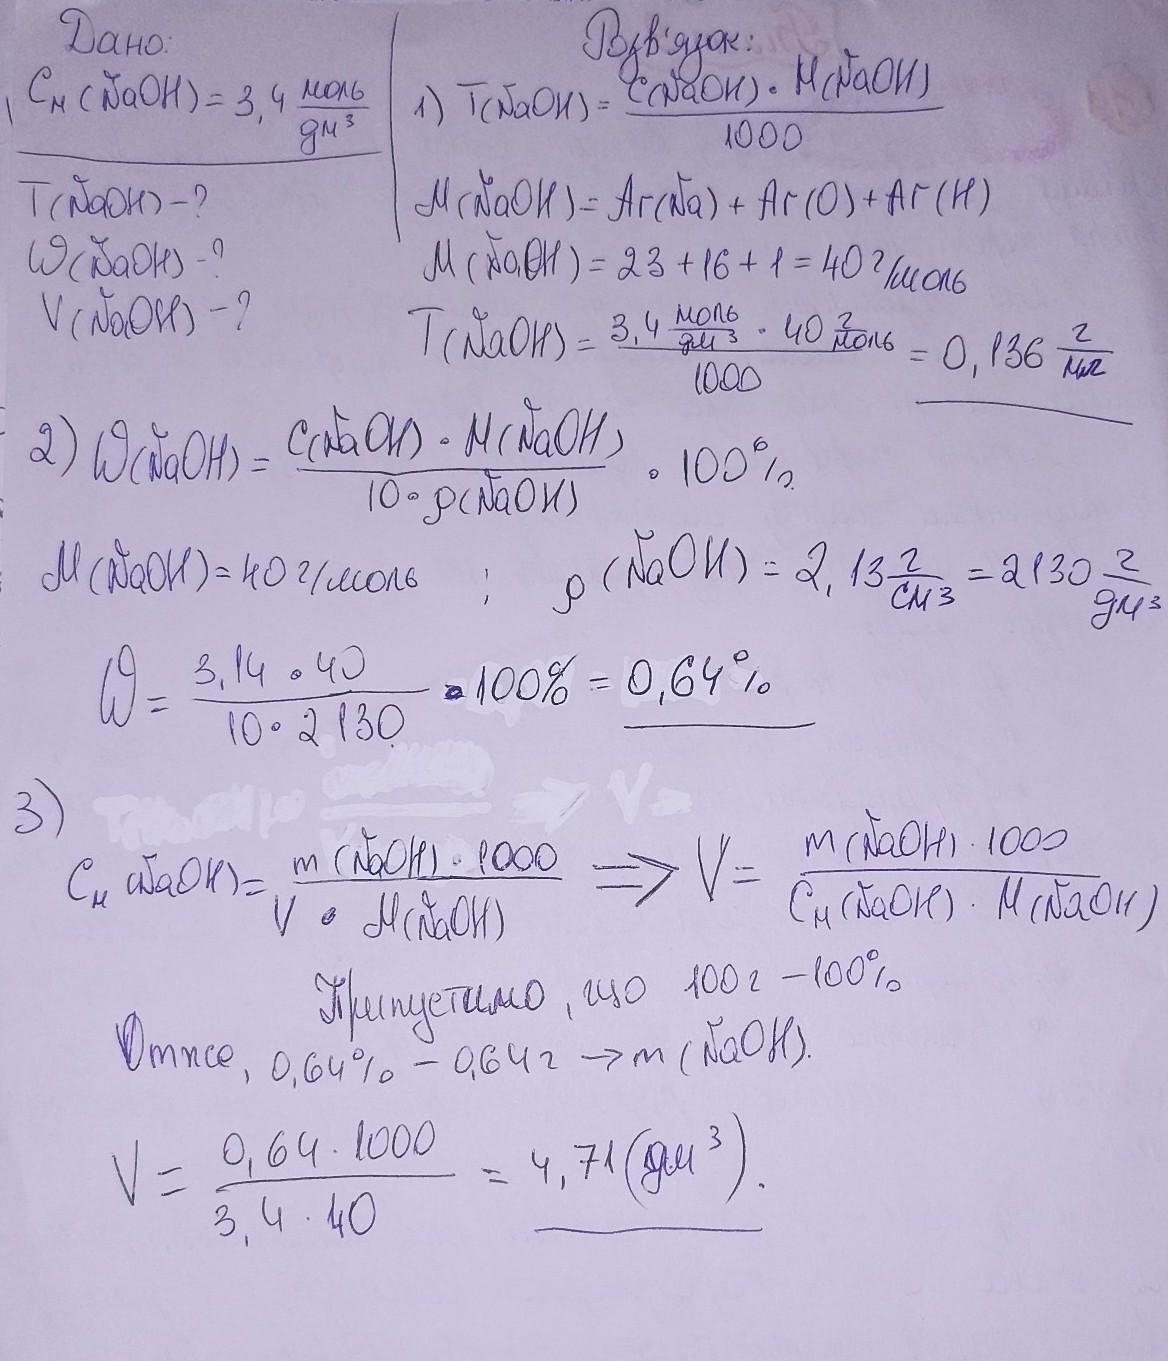 Дано:
Cм(NaOH) = 3,4 моль/дм³
T(NaOH) - ?
ω(NaOH) - ?
V(NaOH) - ?
Розв'язок:
1) T(NaOH) = C(NaOH) · M(NaOH) / 1000
M(NaOH) = Ar(Na) + Ar(O) + Ar(H)
M(NaOH) = 23 + 16 + 1 = 40 г/моль
T(NaOH) = 3,4 моль/дм³ · 40 г/моль / 1000 = 0,136 г/мл
2) ω(NaOH) = C(NaOH) · M(NaOH) / 10 · ρ(NaOH) · 100%
M(NaOH) = 40 г/моль ; ρ(NaOH) = 2,13 г/см³ = 2130 г/дм³
ω = 3,14 · 40 / 10 · 2130 · 100% = 0,64%
3)
Cм(NaOH) = m(NaOH) · 1000 / V · M(NaOH) ⟹ V = m(NaOH) · 1000 / Cм(NaOH) · M(NaOH)
Припустимо, що 100г - 100%
Отже, 0,64% - 0,64г → m(NaOH).
V = 0,64 · 1000 / 3,4 · 40 = 4,71 (дм³).